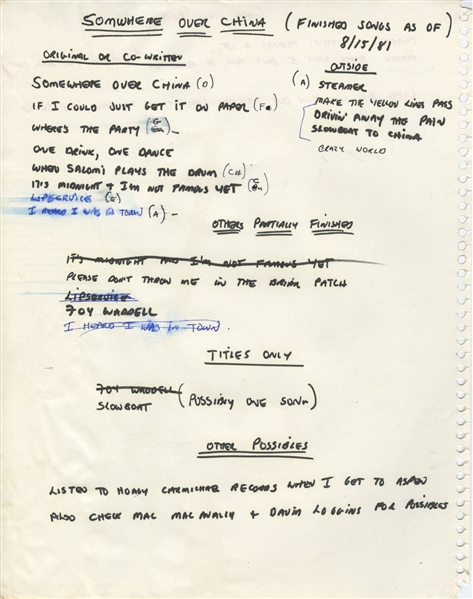 SOMWHERE OVER CHINA (FINISHED SONGS AS OF)
8/15/81
ORIGINAL OR CO-WRITTEN
OUTSIDE
SOMEWHERE OVER CHINA (D)
(A) STEAMER
IF I COULD JUST GET IT ON PAPER
MAKE THE YELLOW LINES PASS
WHERE'S THE PARTY
DRIVIN' AWAY THE PAIN
ONE DRINK, ONE DANCE
SLOWBOAT TO CHINA
WHEN SALOMI PLAYS THE DRUM
CRAZY WORLD
IT'S MIDNIGHT & I'M NOT FAMOUS YET
LIPSERVICE (E)
I HEARD I WAS IN TOWN (A) -
OTHERS PARTIALLY FINISHED
IT'S MIDNIGHT AND I'M NOT FAMOUS YET
PLEASE DON'T THROW ME IN THE BRIAR PATCH
LIPSERVICE
704 WADDELL
I HEARD I WAS IN TOWN.
TITLES ONLY
704 WADDELL
SLOWBOAT (POSSIBLY ONE SONG)
OTHER POSSIBLES
LISTEN TO HOAGY CARMICHAE RECORDS WHEN I GET TO ASPEN
ALSO CHECK MAC MACANALLY & DAVID LOGGINS FOR POSSIBLES